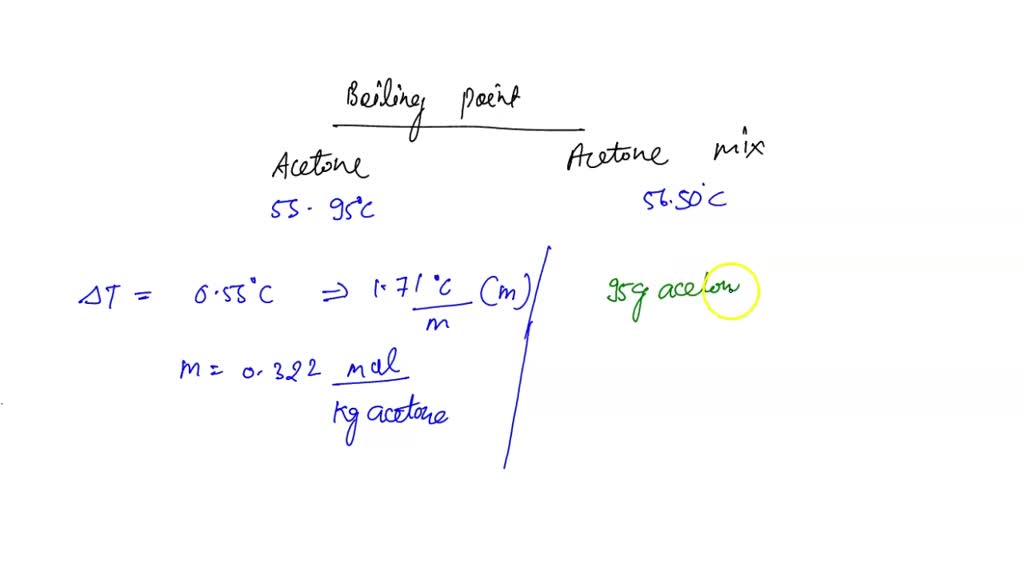 Boiling point
Acetone
Acetone mix
55.95°C
56.50°C
ΔT = 0.55°C ⇒ 1.71 °C/m (m)
95g aceton
m = 0.322 mol/kg acetone